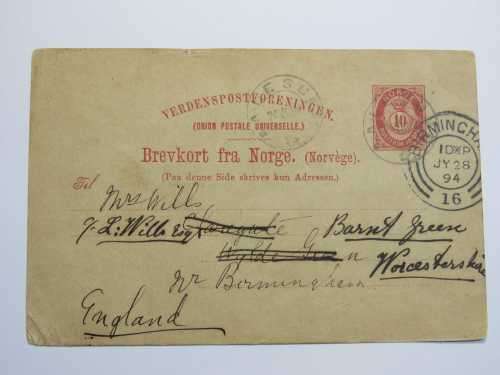 VERDENSPOSTFORENINGEN.
(UNION POSTALE UNIVERSELLE.)
Brevkort fra Norge. (Norvège).
(Paa denne Side skrives kun Adressen.)
NORGE
10
BIRMINGHAM
JY 28
94
16
Til Mrs Wills
L. Wills Esq Barnt Green
Wylde Green Worcestershire
nr Birmingham
England